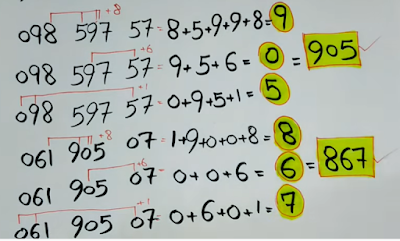 +8
098 597 57 = 8+5+9+9+8=9
+6
098 597 57 = 9+5+6= 0 = 905
+1
098 597 57 = 0+9+5+1= 5
+8
061 905 07 = 1+9+0+0+8= 8
+6
061 905 07 - 0+0+6= 6 = 867
+1
061 905 07 - 0+6+0+1= 7